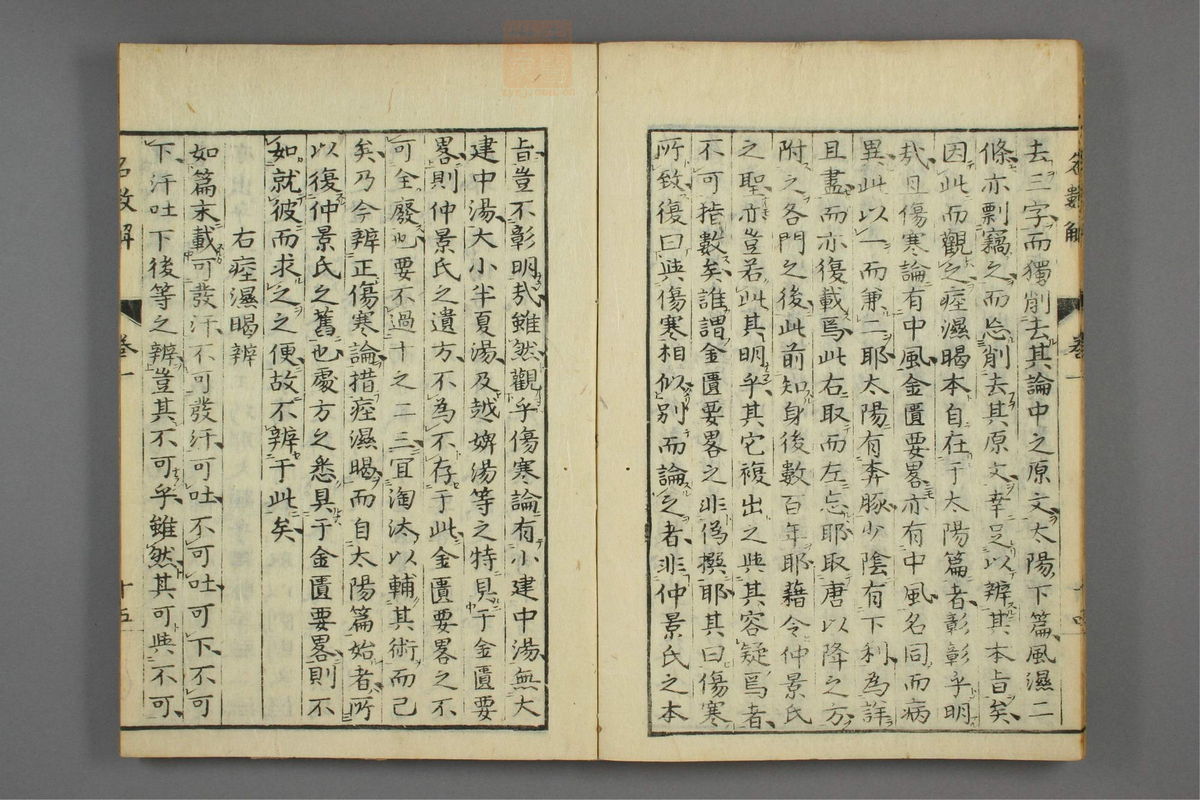 去三字而獨削去其論中之原文太陽下篇風濕二
條亦剽竊之而忘削去其原文幸足以辨其本旨矣
因此而觀之痙濕暍本自在于太陽篇者彰彰乎明
哉且傷寒論有中風金匱要畧亦有中風名同而病
異此以一而兼二耶太陽有奔豚少陰有下利為詳
且盡而亦復載焉此右取而左忘耶取唐以降之方
附之各門之後此前知身後數百年耶藉令仲景氏
之聖亦豈若此其明乎其它複出之與其容疑焉者
不可指數矣誰謂金匱要畧之非偽撰耶其曰傷寒
所致復曰與傷寒相似別而論之者非仲景氏之本
名數解 卷一
旨豈不彰明哉雖然觀乎傷寒論有小建中湯無大
建中湯大小半夏湯及越婢湯等之特見于金匱要
畧則仲景氏之遺方不為不存于此金匱要畧之不
可全廢也要不過十之二三宜淘汰以輔其術而已
矣乃今辨正傷寒論措痙濕暍而自太陽篇始者所
以復仲景氏之舊也處方之悉具于金匱要畧則不
如就彼而求之之便故不辨于此矣
右痙濕暍辨
如篇末載可發汗不可發汗可吐不可吐可下不可
下汗吐下後等之辨豈其不可乎雖然其可與不可
名數解 卷一 十五